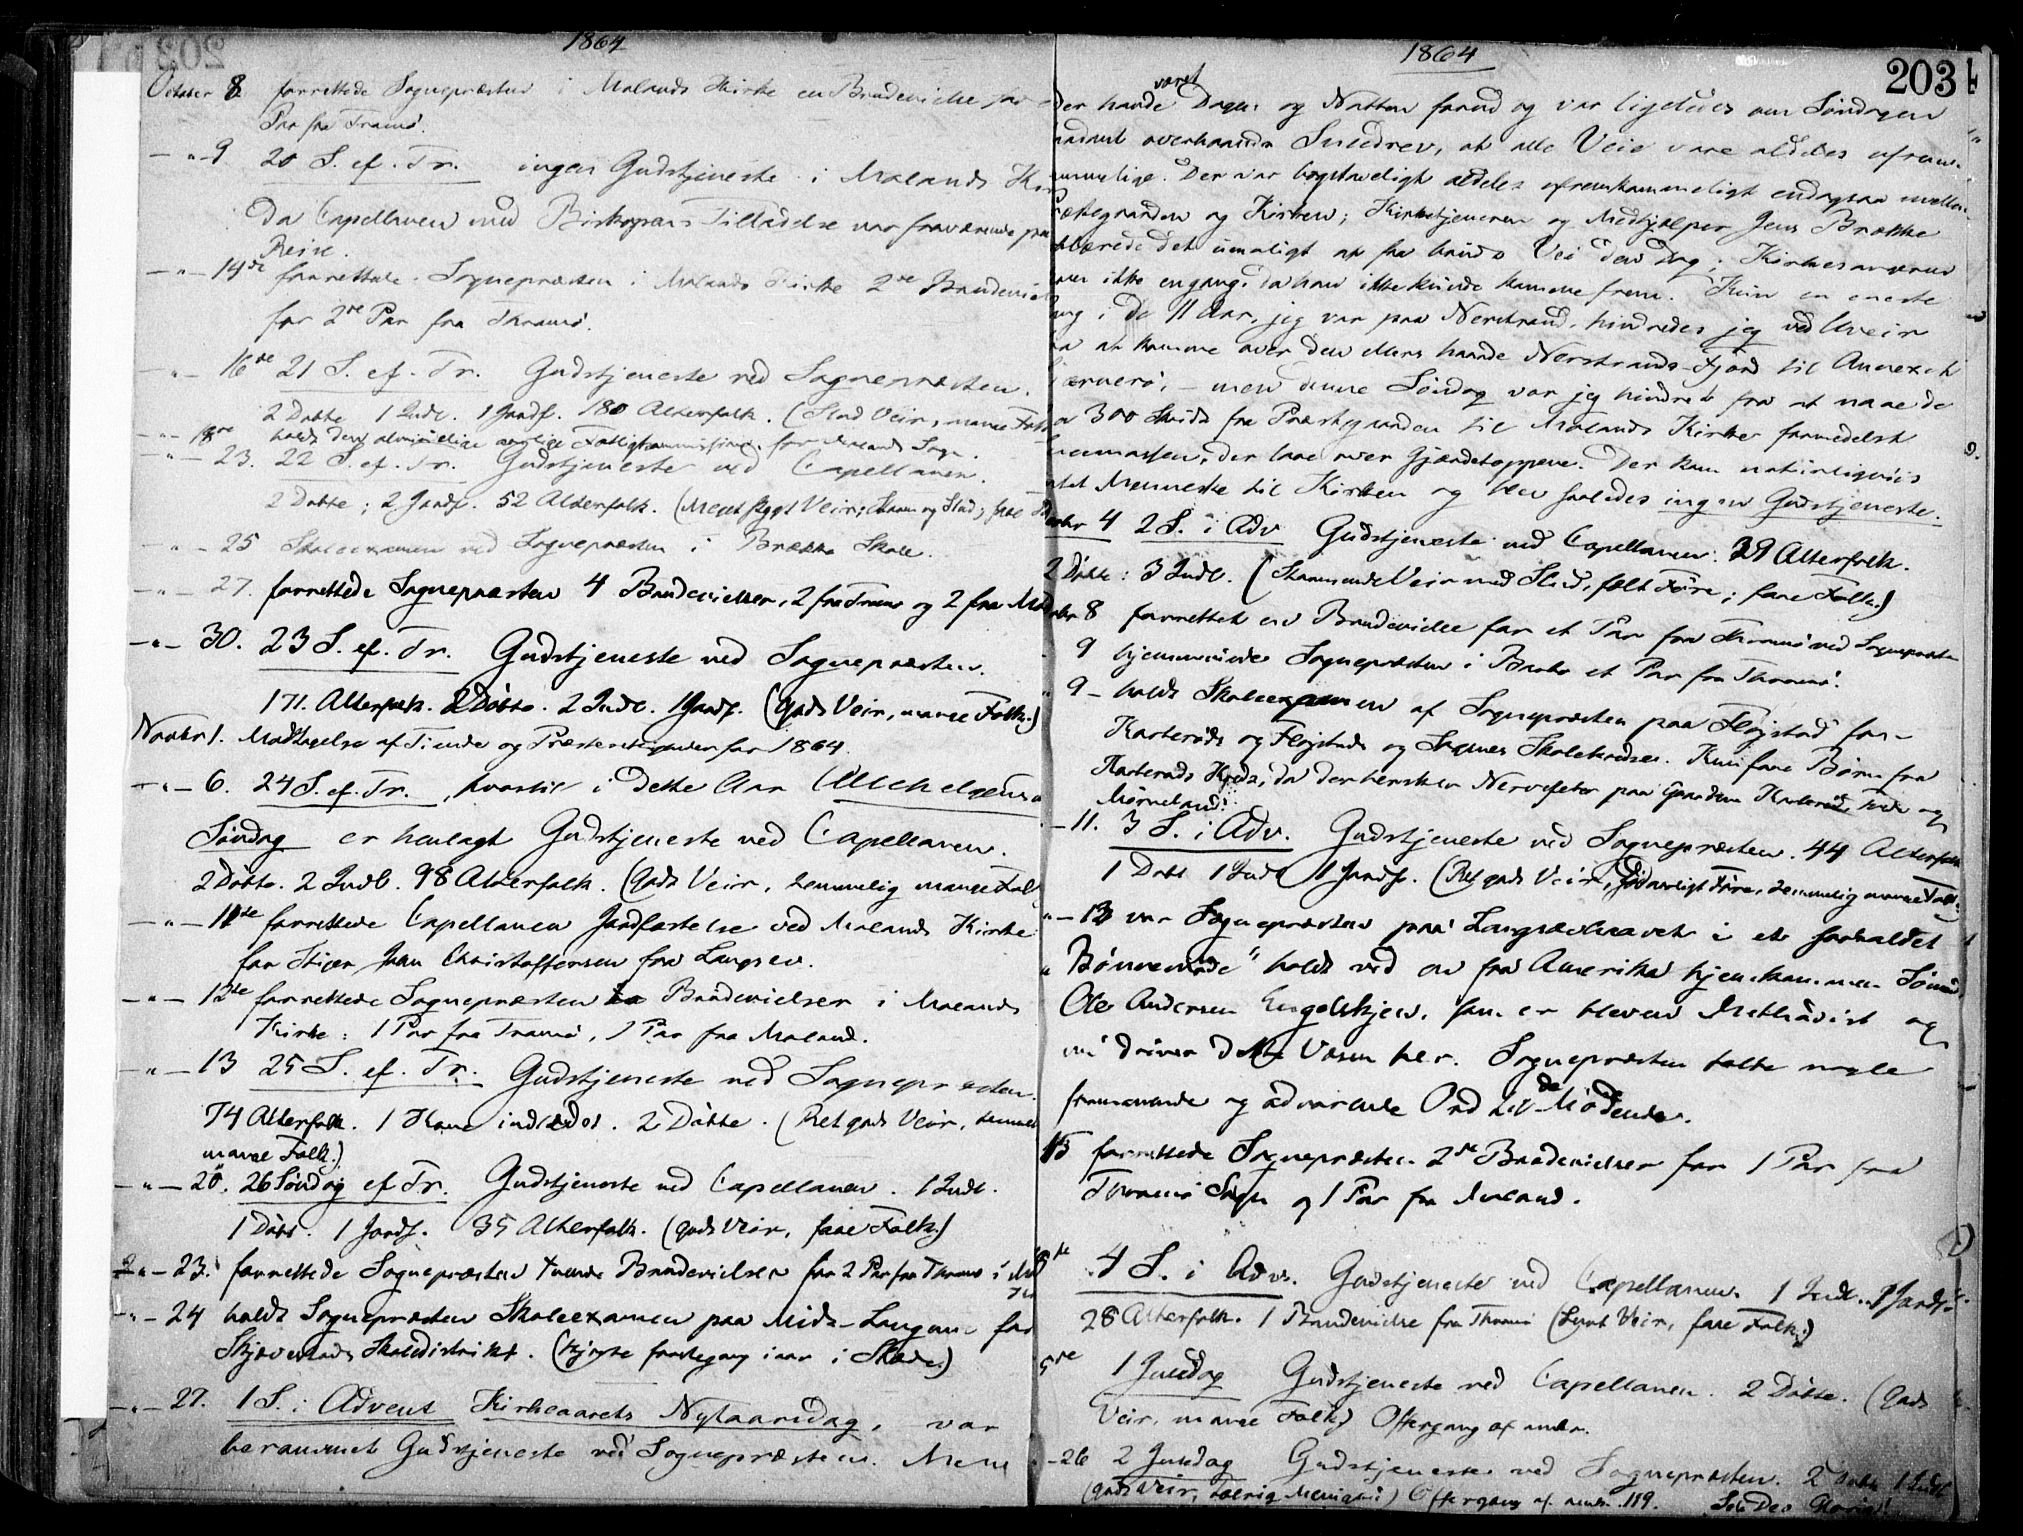 1864
October 8 forrettede Sognepræsten i Molands Kirke en Brudevielse for
Par fra Tromö.
— " — 9. 20 S. ef. Tr. ingen Gudstjeneste i Molands Kir
da Capellanen med Biskopens Tilladelse var fraværende paa
Reise.
— " — 14de forrettede Sognepræsten i Molands Kirke 2de Brudeviels
for 2de Par fra Thromö.
— " — 16de 21 S. ef. Tr. Gudstjeneste ved Sognepræsten.
2 Döbte 1 Indl. 1 Jordf. 180 Alterfolk. (Slud Veir, mange Folk
— " — 18de holdt den almindelige aarlige Fattigkommission for Molands Sogn.
— " — 23. 22 S. ef. Tr. Gudstjeneste ved Capellanen.
2 Döbte; 2 Jordf. 52 Alterfolk. (Meget stygt Veir; Storm og Slud; faae Fo
— " — 25 Skoleexamen ved Sognepræsten i Brække Skole.
— " — 27. forrettede Sognepræsten 4 Brudevielser, 2 fra Tromö og 2 fra Mol
— " — 30. 23 S. ef. Tr. Gudstjeneste ved Sognepræsten.
171. Alterfolk. 2 Döbte. 2 Indl. 1 Jordf. (godt Veir, mange Folk.)
Novbr 1. Modtagelse af Tiende og Præsterettigheder for 1864.
— " — 6. 24 S. ef. Tr., hvortil i dette Aar Allehelgens
Söndag er henlagt Gudstjeneste ved Capellanen.
2 Döbte. 2 Indl. 98 Alterfolk. (godt Veir, temmelig mange Folk
— " — 11te forrettede Capellanen Jordfæstelse ved Molands Kirke
for Stiger John Christoffersen fra Langsev.
— " — 12te forrettede Sognepræsten to Brudevielser i Molands
Kirke: 1 Par fra Tromö, 1 Par fra Moland.
— " — 13 25 S. ef. Tr. Gudstjeneste ved Sognepræsten.
74 Alterfolk. 1 Kone indledet. 2 Döbte. (Ret godt Veir, temmel
mange Folk.)
— " — 20. 26 Söndag ef Tr. Gudstjeneste ved Capellanen. 1 Indl.
1 Döbt. 1 Jordf. 35 Alterfolk. (godt Veir, faae Folk.)
— " — 23. forrettede Sognepræsten tvende Brudevielser for 2 Par fra Thromö i Mol
— " — 24 holdt Sognepræsten Skoleexamen paa Midt-Langan for
Skjævestads Skoledistrikt. (Kjørte förstegang i aar i Slæde.)
— " — 27. 1 S. i Advent Kirkeaarets Nytaarsdag, var
berammet Gudstjeneste ved Sognepræsten. Men
1864
203
der havde været Dagen og Natten forud og var ligeledes om Söndagen
saadant overhaands Sneedrev, at alle Veie vare aldeles ufrem-
kommelige. Der var bogstaveligt aldeles ufremkommeligt endogsaa mellem
Præstegaarden og Kirken; Kirketjeneren og Medhjælper Jens Brække
erklærede det umuligt at faa brudt Vei den Dag; Kirkesangeren
kom ikke engang, da han ikke kunde komme frem. Kun en eneste
Gang i de 11 Aar, jeg var paa Nerstrand, hindredes jeg ved Uveir
fra at komme over den ellers haarde Nerstrands-Fjord til Annexet
Sjernerö, — men denne Söndag var jeg hindret fra at naae de
300 Skridt fra Præstegaarden til Molands Kirke formedelst
Sneemassen, der laae over Gjærdetoppene. Der kom naturligviis
intet Menneske til Kirken og blev saaledes ingen Gudstjeneste.
Decbr 4 2 S. i Adv Gudstjeneste ved Capellanen. 39 Alterfolk.
2 Döbte: 3 Indl. (Stormende Veir med Slud, fælt Före; faae Folk.)
Decbr 8 forrettet en Brudevielse for et Par fra Thromö ved Sognepræsten
9 hjemmeviede Sognepræsten i Barbo et Par fra Thromö.
" 9 — holdt Skoleexamen af Sognepræsten paa Flöjstad for
Karteröds og Flöjstads og Sagnes Skolekredse. Kun faae Börn fra
Karteröds Kreds, da der hersker Nervefeber paa Gaardene Karteröd, Tvede og
Mörneland.
— 11. 3 S. i Adv. Gudstjeneste ved Sognepræsten. 44 Alterfolk
1 Döbt 1 Indl 1 Jordf. (Ret godt Veir, daarligt Före, temmelig mange Folk.)
" — 13 var Sognepræsten paa Langsævhavet i et saakaldet
"Bönnemöde" holdt ved en fra Amerika hjemkommen Sömand
Ole Andersen Engelskjen, som er bleven Methodist og
nu driver dette Væsen her. Sognepræsten talte nogle
formanende og advarende Ord til de Mödende.
15 forrettede Sognepræsten 2de Brudevielser for 1 Par fra
Thromö Sogn og 1 Par fra Moland.
18de 4 S. i Adv. Gudstjeneste ved Capellanen. 1 Indl. 1 Jordf.
28 Alterfolk. 1 Brudevielse fra Thromö (Surt Veir, faae Folk.)
5de 1 Juledag Gudstjeneste ved Capellanen. 2 Döbte. (godt
Veir, mange Folk) Offergang af menh.
— 26 2 Juledag Gudstjeneste ved Sognepræsten. 2 Döbte 1 Indl
(godt Veir, talrig Menighed) Offergang af menh. 119. Soli Deo Gloria!